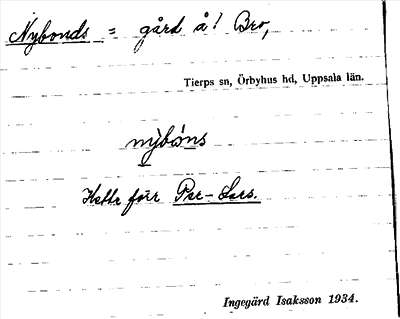 Nybonds = gård å! Bro,
Tierps sn, Örbyhus hd, Uppsala län.
nỳbòns
Hette förr Per-Lars.
Ingegärd Isaksson 1934.